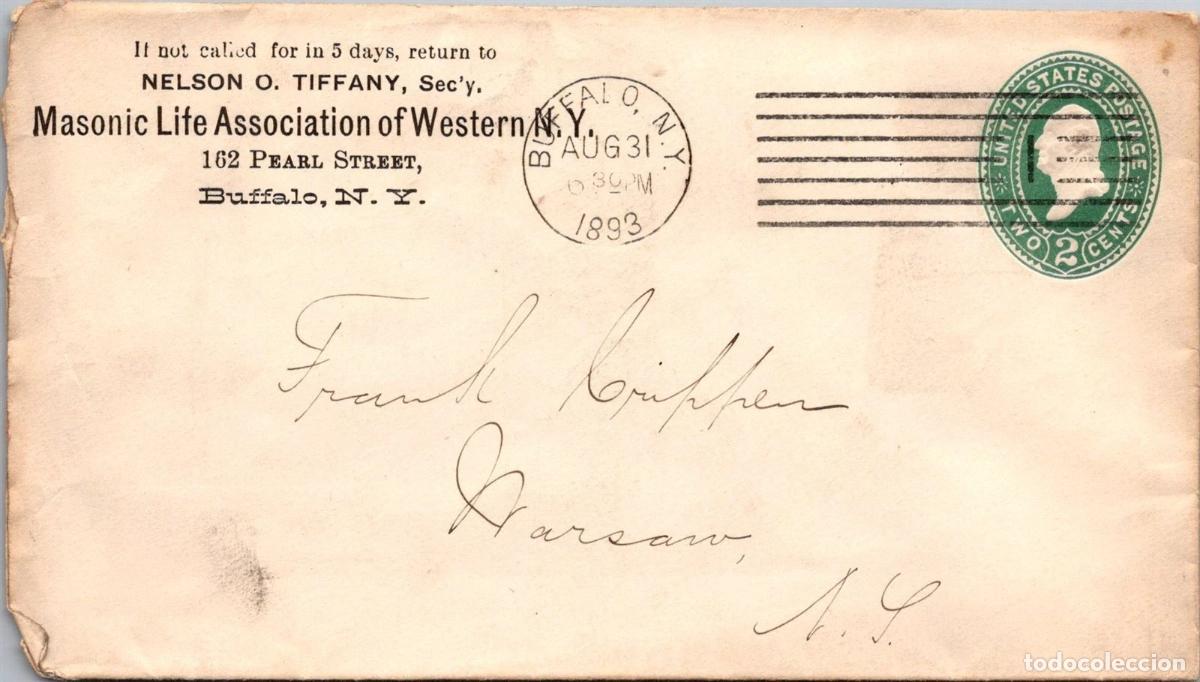 If not called for in 5 days, return to
NELSON O. TIFFANY, Sec'y.
Masonic Life Association of Western N.Y.
162 PEARL STREET,
Buffalo, N. Y.
BUFFALO, N.Y.
AUG 31
6 30 PM
1893
1
UNITED STATES POSTAGE
TWO 2 CENTS
Frank Crippen
Warsaw,
N. Y.
todocoleccion